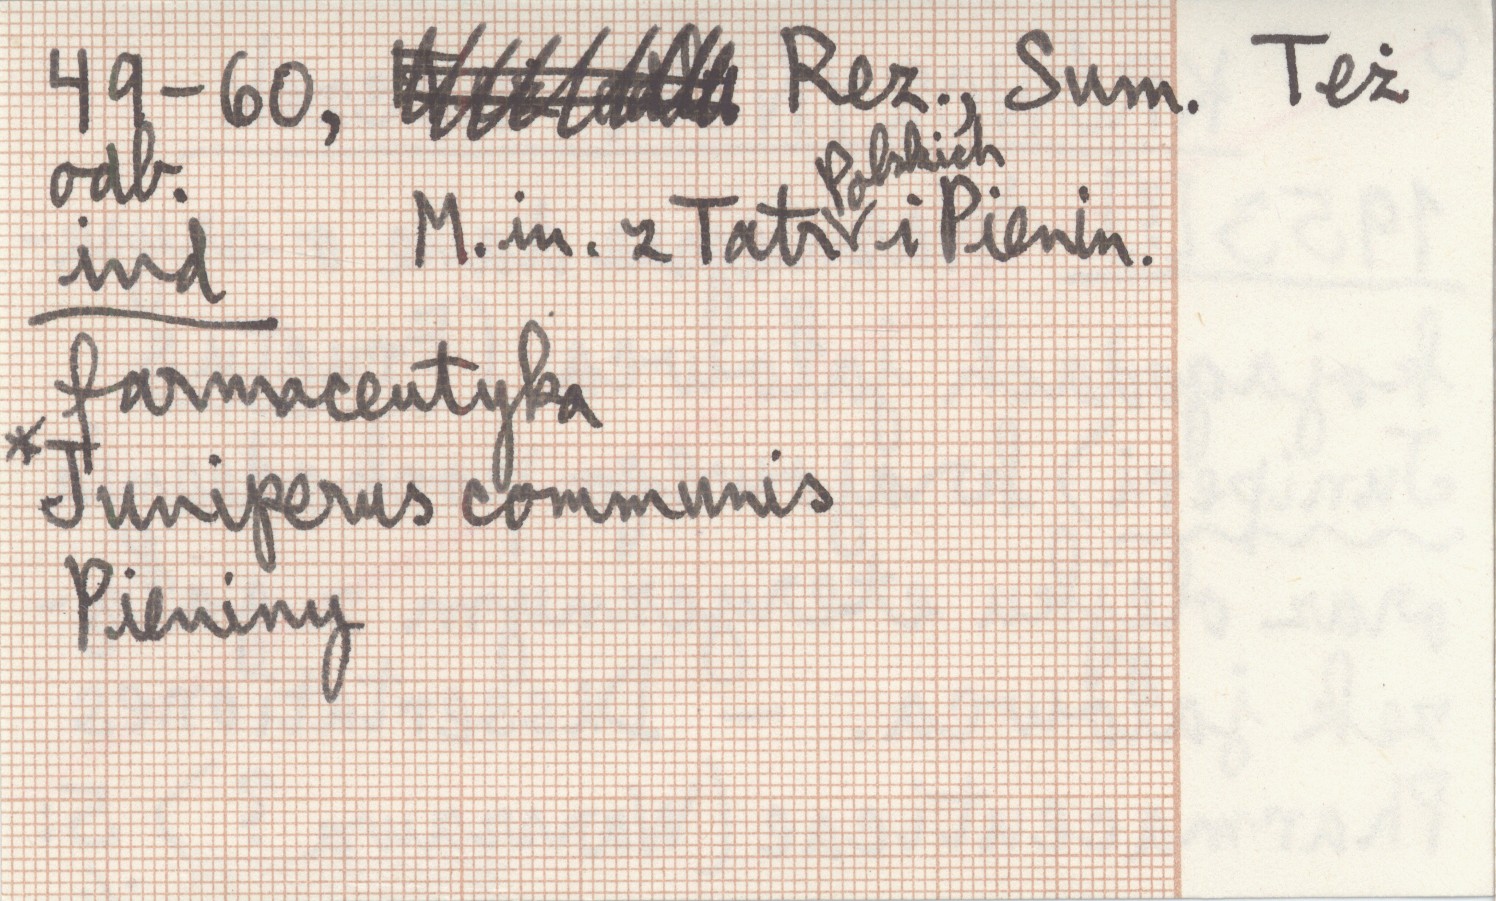 49-60, Rez., Sum. Też
odb. M. in. z Tatr Polskich i Pienin.
ind
farmaceutyka
*Juniperus communis
Pieniny